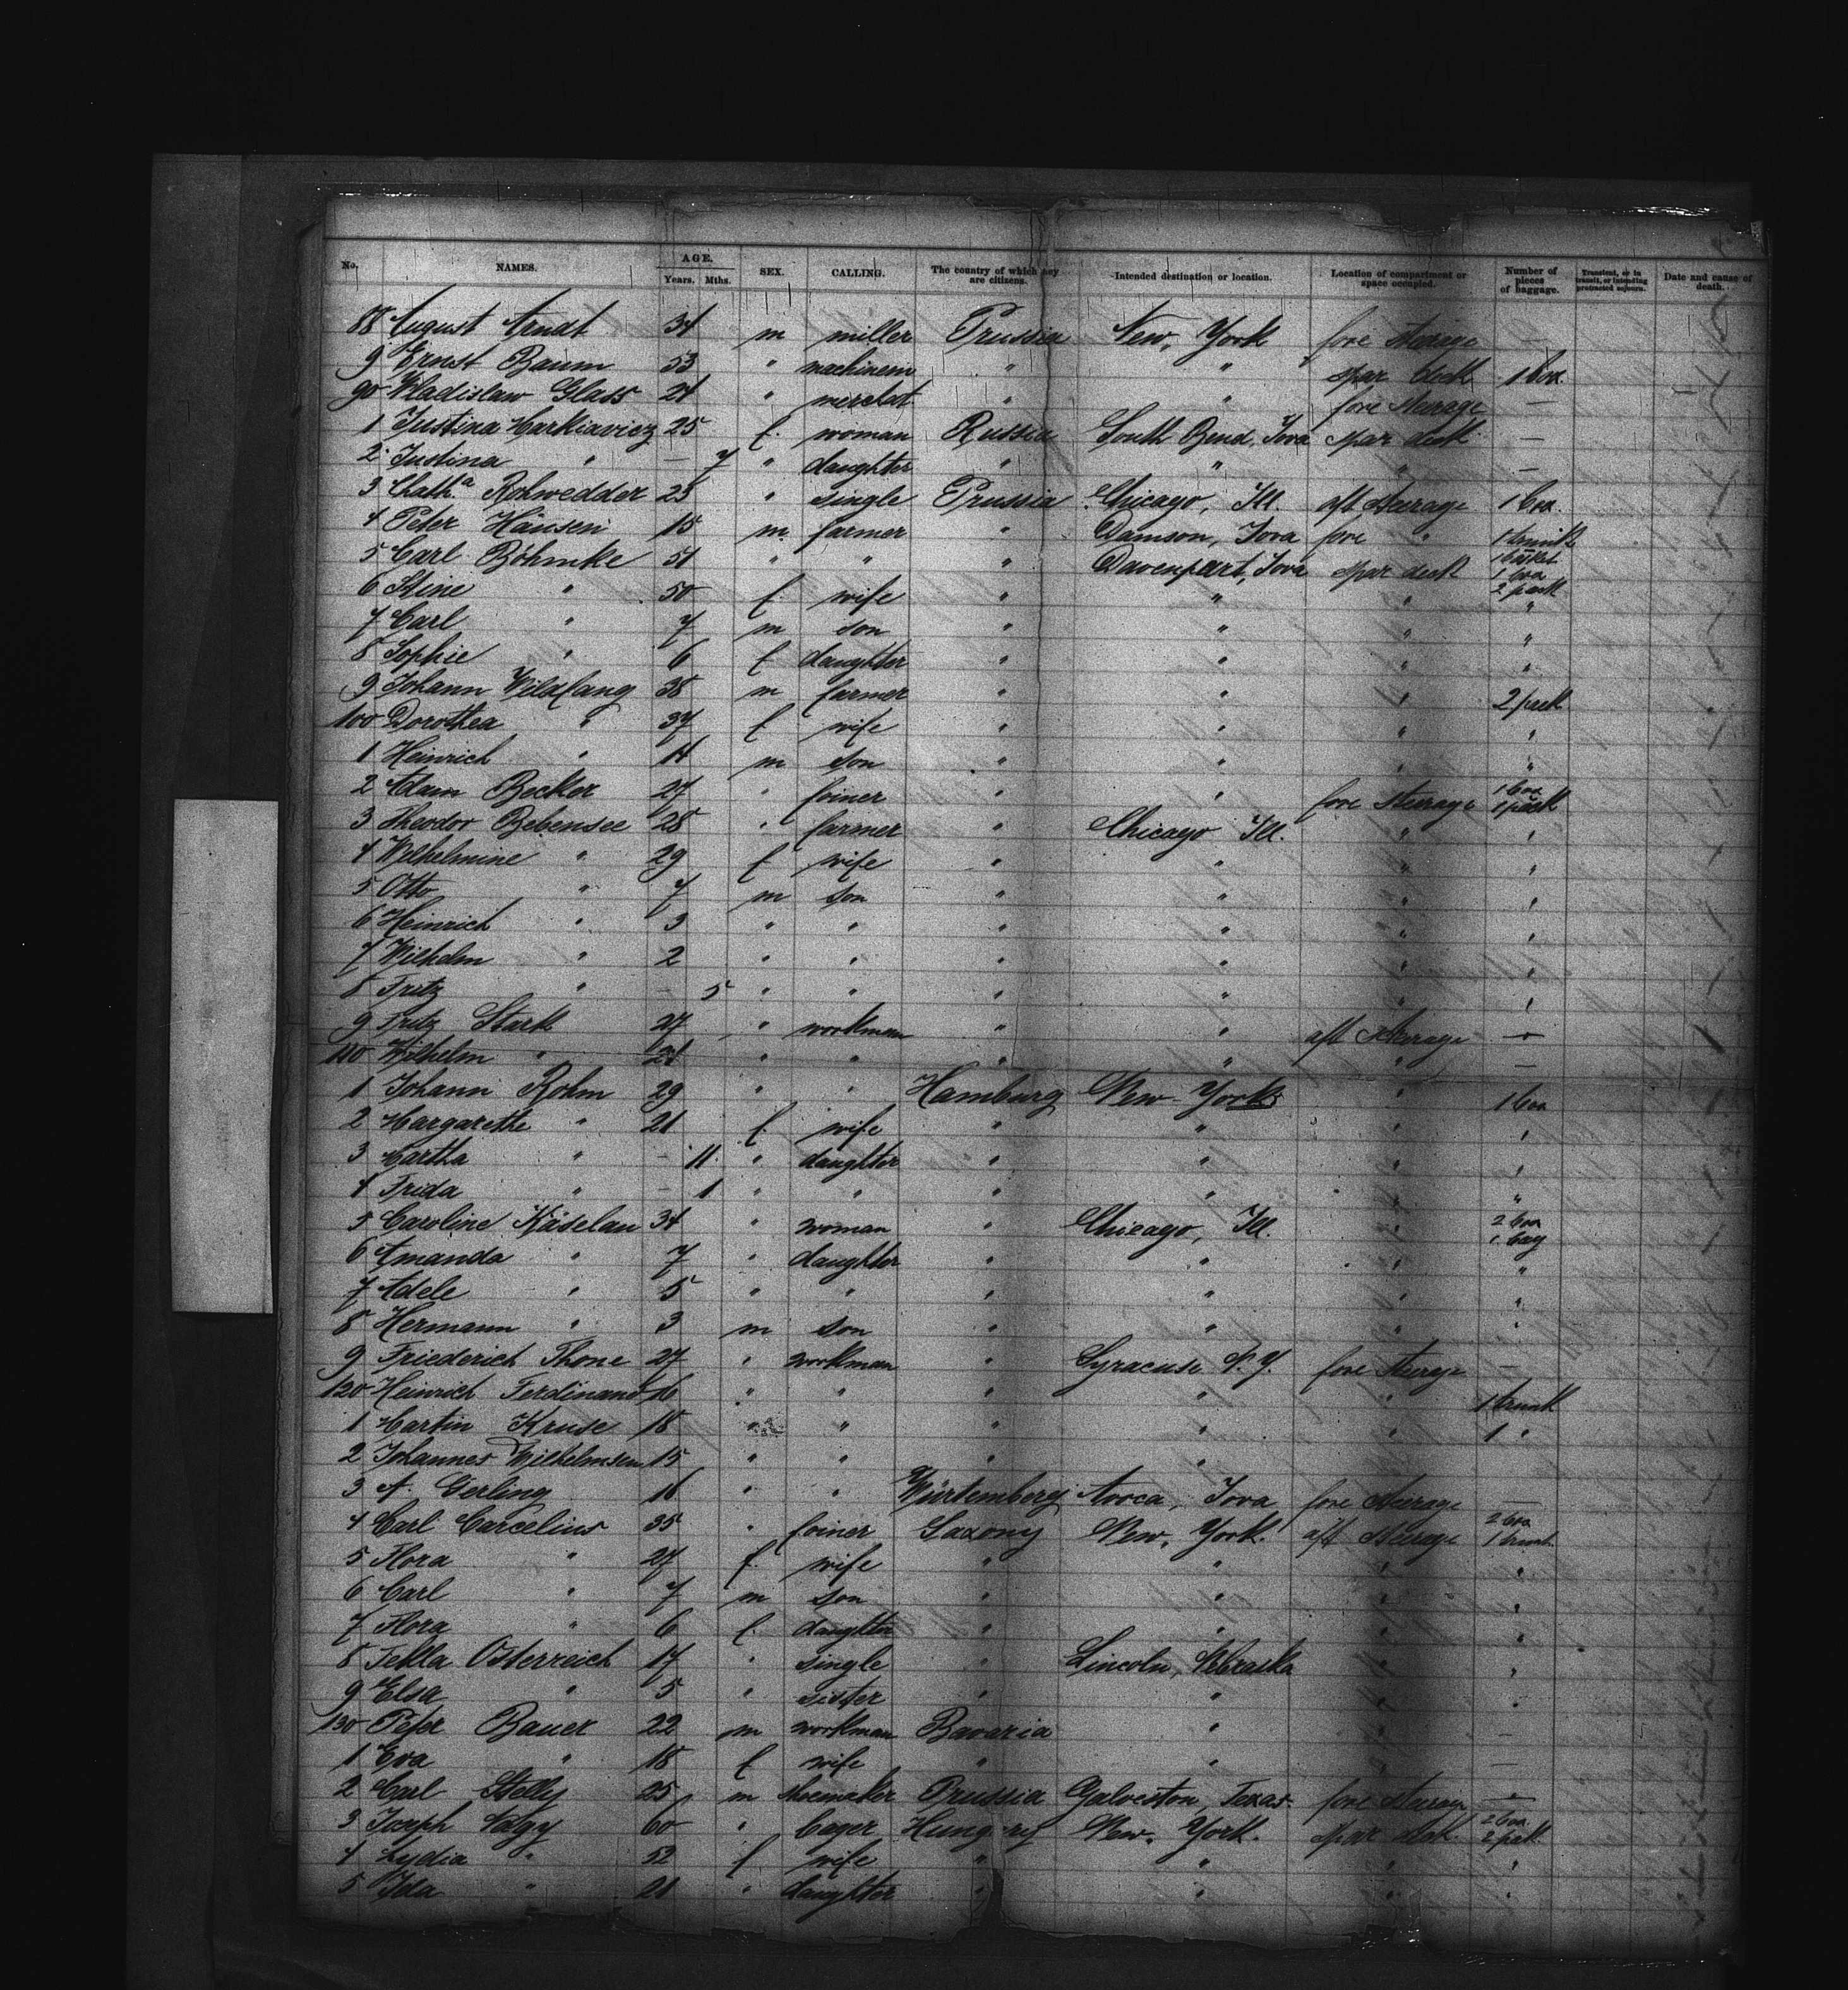 No. NAMES. AGE. Years. Mths. SEX. CALLING. The country of which they are citizens. Intended destination or location. Location of compartment or space occupied. Number of pieces of baggage. Transient, or in transit, or intending protracted sojourn. Date and cause of death.
88 August Arndt 34 m miller Prussia New, York fore steerage —
9 Ernst Baum 53 " " " spar deck 1 box
90 Wladislaw Glass 24 " " " fore steerage —
1 Justina Markiavicz 25 f. woman Russia South Bend, Iova spar deck —
2 Justina " — 7 " daughter " " " —
3 Cath.a Rohwedder 25 " single Prussia Chicago, Ill. aft steerage 1 box
4 Peter Hänsen 15 m farmer " Damson, Iova fore " 1 trunk
5 Carl Böhmke 51 " " " Davenpart, Iova spar deck 1 basket 1 box 2 pack
6 Stine " 50 f. wife " " " "
7 Carl " 7 m son " " " "
8 Sophie " 6 f daughter " " " "
9 Johann Wildfang 38 m farmer " " " 2 pack
100 Dorothea " 37 f wife " " " "
1 Heinrich " 14 m son " " " "
2 Adam Becker 27 " joiner " " fore steerage 1 box 1 pack
3 Theodor Bebensee 28 " farmer " Chicago Ill. " "
4 Wilhelmine " 29 f wife " " " "
5 Otto " 7 m son " " " "
6 Heinrich " 3 " " " " " "
7 Wilhelm " 2 " " " " " "
8 Fritz " — 5 " " " " " "
9 Fritz Stark 27 " workman " " aft steerage —
110 Wilhelm " 21 " " " " " —
1 Johann Rohm 29 " " Hamburg New York " 1 box
2 Margarethe " 21 f. wife " " " "
3 Martha " — 11 " daughter " " " "
4 Frida " — 1 " " " " " "
5 Caroline Käselau 34 " woman " Chicago, Ill. " 2 box 1 bag
6 Amanda " 7 " daughter " " " "
7 Adele " 5 " " " " " "
8 Hermann " 3 m son " " " "
9 Friederich Thone 27 " workman " Syracuse N. Y. fore steerage —
120 Heinrich Ferdinand 16 " " " " " 1 trunk
1 Martin Kruse 18 " " " " " 1 "
2 Johannes Wilhelmsen 15 " " " "
3 A. Gerling 16 " " Würtemberg Avoca, Iova fore steerage —
4 Carl Marcelius 35 " joiner Saxony New, York. aft steerage 2 box 1 trunk
5 Flora " 27 f. wife " " " "
6 Carl " 7 m son " " " "
7 Flora " 6 f. daughter " " " "
8 Tekla Osterreich 17 " single " Lincoln, Nebraska " "
9 Elsa " 5 " sister " " " "
130 Peter Bauer 22 m workman Bavaria " " —
1 Eva " 18 f wife " " " —
2 Carl Stelly 25 m shoemaker Prussia Galveston, Texas. fore steerage —
3 Joseph 60 " Hungary New, York. spar deck 2 box 2 pack
4 Lydia " 52 f wife " " " "
5 Ida " 21 " daughter " " " "